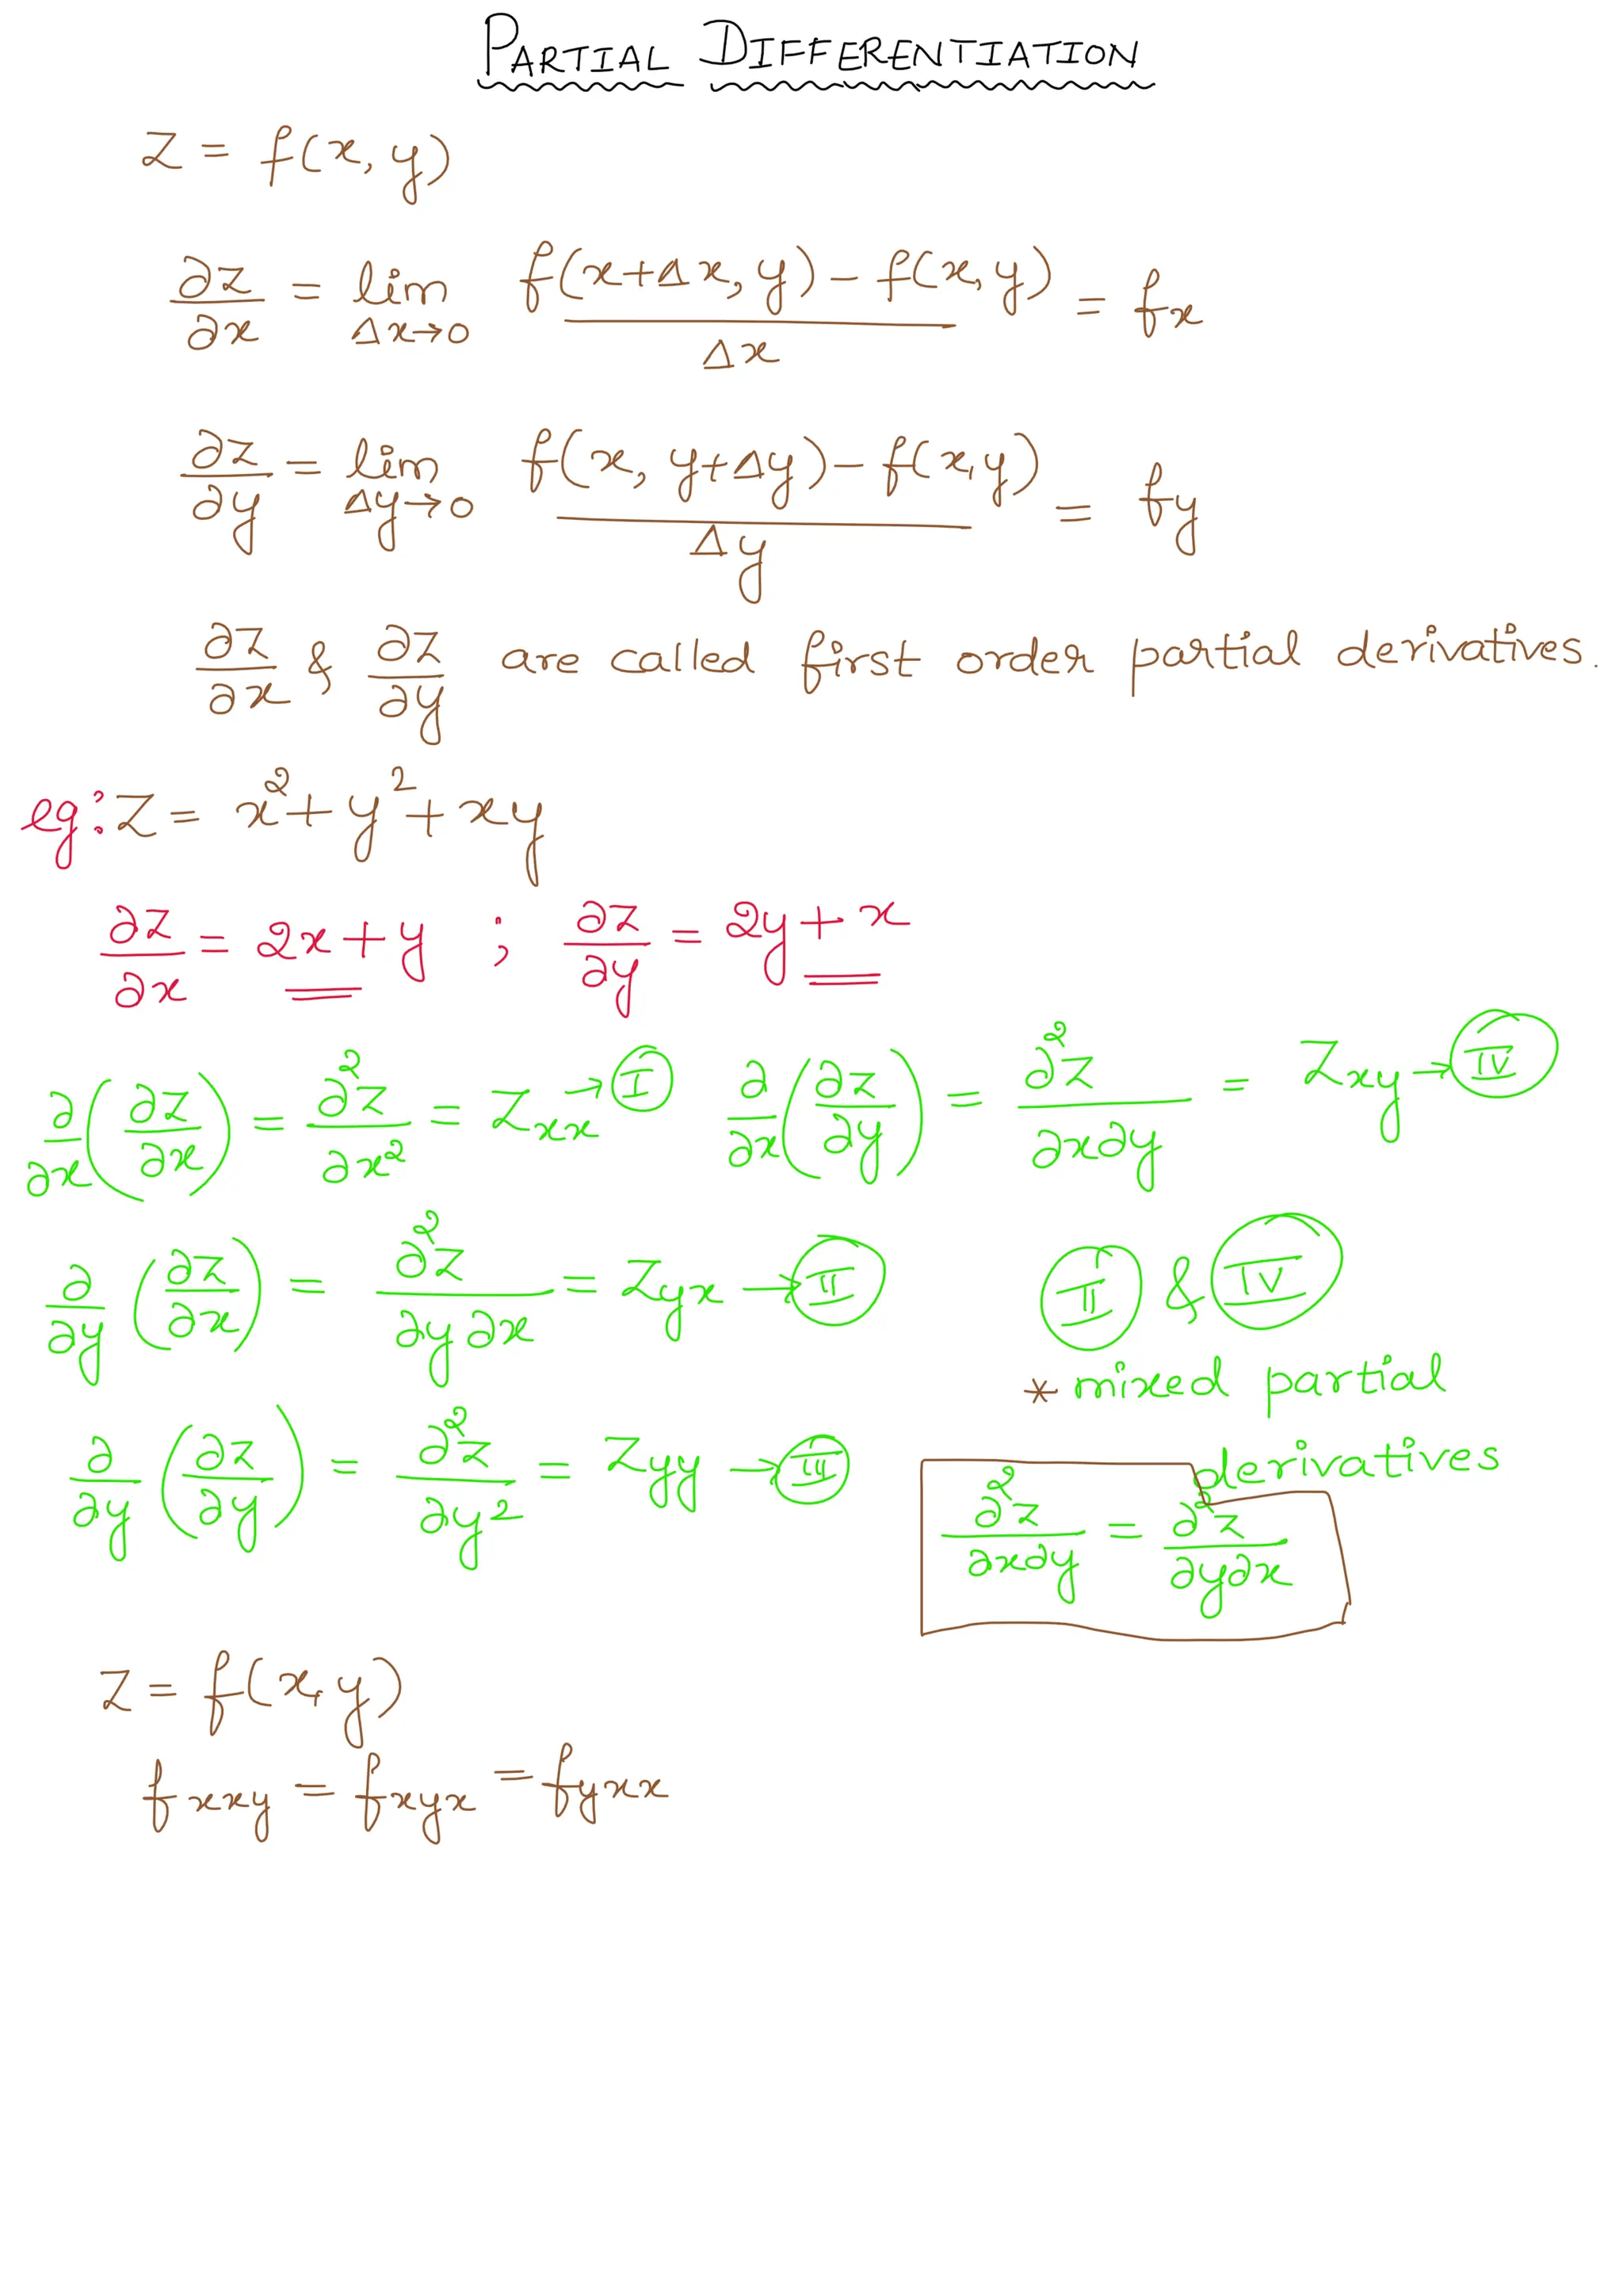 PARTIAL DIFFERENTIATION
z = f(x, y)
∂z/∂x = lim Δx→0 f(x+Δx, y) − f(x, y) / Δx = fx
∂z/∂y = lim Δy→0 f(x, y+Δy) − f(x, y) / Δy = fy
∂z/∂x & ∂z/∂y are called first order partial derivatives.
eg: z = x² + y² + xy
∂z/∂x = 2x + y ; ∂z/∂y = 2y + x
∂/∂x (∂z/∂x) = ∂²z/∂x² = Zxx → I ∂/∂x (∂z/∂y) = ∂²z/∂x∂y = Zxy → IV
∂/∂y (∂z/∂x) = ∂²z/∂y∂x = Zyx → II
II & IV
* mixed partial
derivatives
∂/∂y (∂z/∂y) = ∂²z/∂y² = Zyy → III
∂²z/∂x∂y = ∂²z/∂y∂x
z = f(x, y)
fxxy = fxyx = fyxx